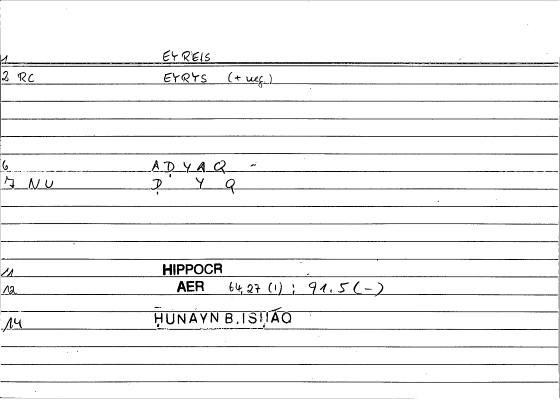 1 EYREIS
2 RC EYRYS (+ neg.)
6 AḌYAQ -
7 NU Ḍ Y Q
11 HIPPOCR
12 AER 64,27 (1) ; 91.5 (-)
14 ḤUNAYN B. ISḤĀQ